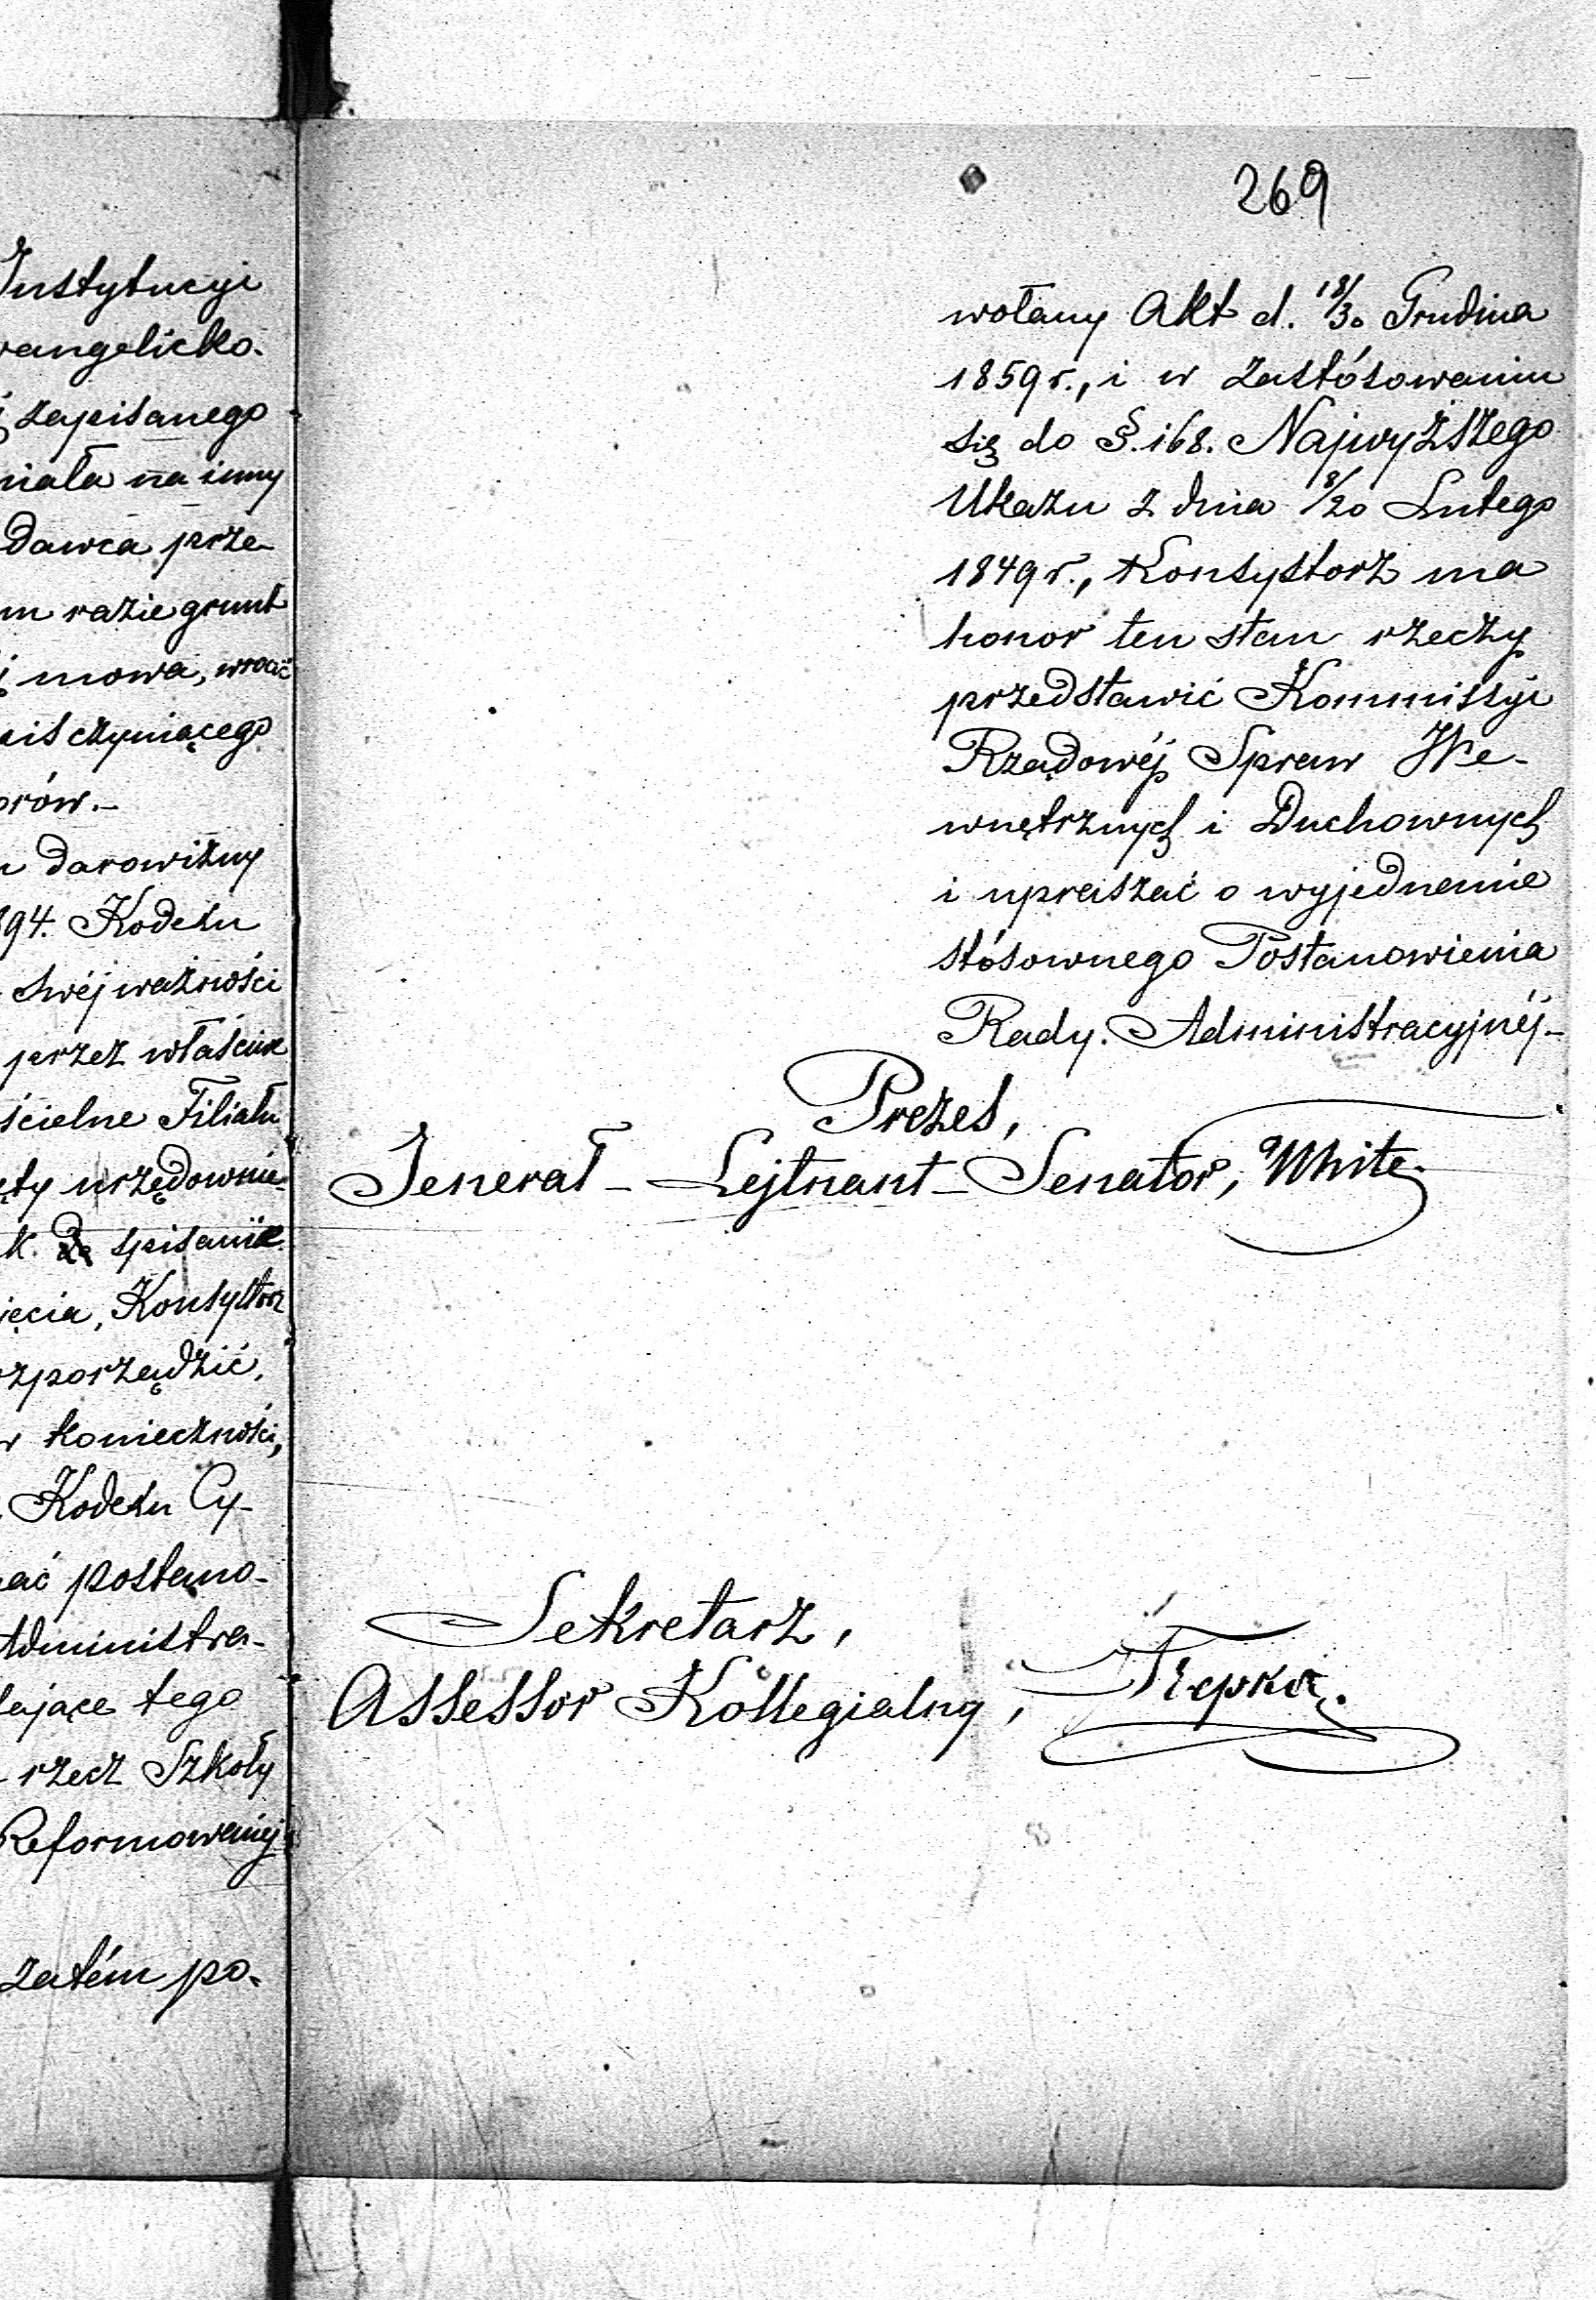 Instytucyi
vangelicko-
zapisanego
miała na inny
dawca prze-
m razie grunt
mowa, wrócić
czyniącego
orów.-
darowizny
894. Kodexu
swéj ważności
przez właściwe
ścielne Filiału
ęty urzędownie
k. spisanie
jęcia, Konsystorz
zporządzić,
konieczności,
Kodexu Cy-
ać postano-
Administra-
lające tego
rzecz Szkoły
Reformowanéj
zatém po-
269
wołany Akt d. 18/30 Grudnia
1859 r., i w zastósowaniu
się do §. 168. Najwyższego
Ukazu z dnia 8/20 Lutego
1849 r., Konsystorz ma
honor ten stan rzeczy
przedstawić Kommissyi
Rządowéj Spraw We-
wnętrznych i Duchownych
i upraszać o wyjednanie
stósownego Postanowienia
Rady Administracyjnéj-
Prezes,
Jenerał-Lejtnant-Senator, White.
Sekretarz,
Assessor Kollegialny, Trepka.